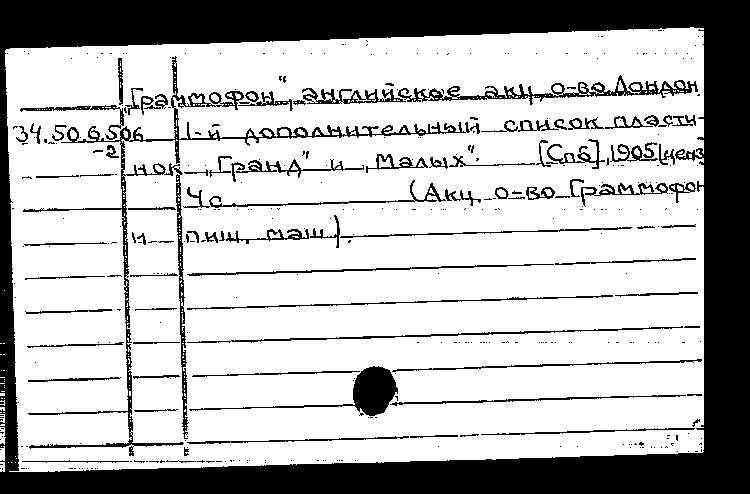 „Граммофон", английское акц. о-во. Лондон
34.50.6.506 1-й дополнительный список пласти-
-2 нок „Гранд" и „Малых". [Спб], 1905 [ценз
4с. (Акц. о-во Граммофон
и пиш. маш).